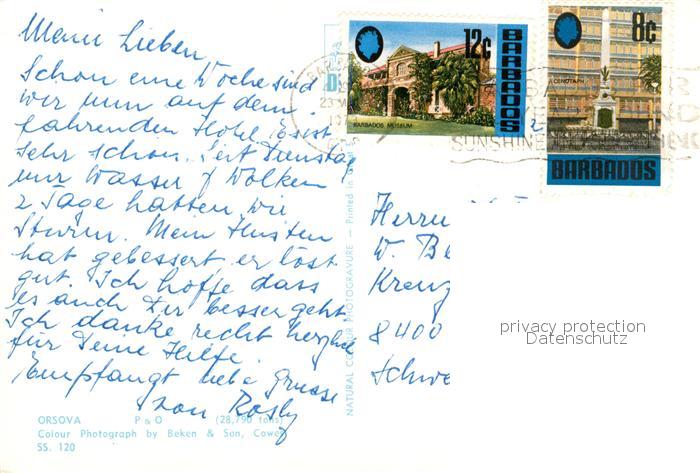 Meine Lieben
Schon eine Woche sind
wir nun auf dem
fahrenden Hotel. Es ist
sehr schön. Seit Dienstag
nur Wasser & Wolken
2 Tage hatten wir
Sturm. Mein Husten
hat gebessert, er löst
gut. Ich hoffe dass
es auch Dir besser geht.
Ich danke recht herzlich
für Deine Hilfe.
Empfangt liebe Grüsse
von Rosly
ORSOVA P & O (28,790 tons)
Colour Photograph by Beken & Son, Cowes
SS. 120
NATURAL COLOUR PHOTOGRAVURE — Printed in
12c
BARBADOS
BARBADOS MUSEUM
8c
CENOTAPH
BARBADOS
SUNSHINE
Herrn
W. Be
Kreuz
8400
Schwe
privacy protection
Datenschutz